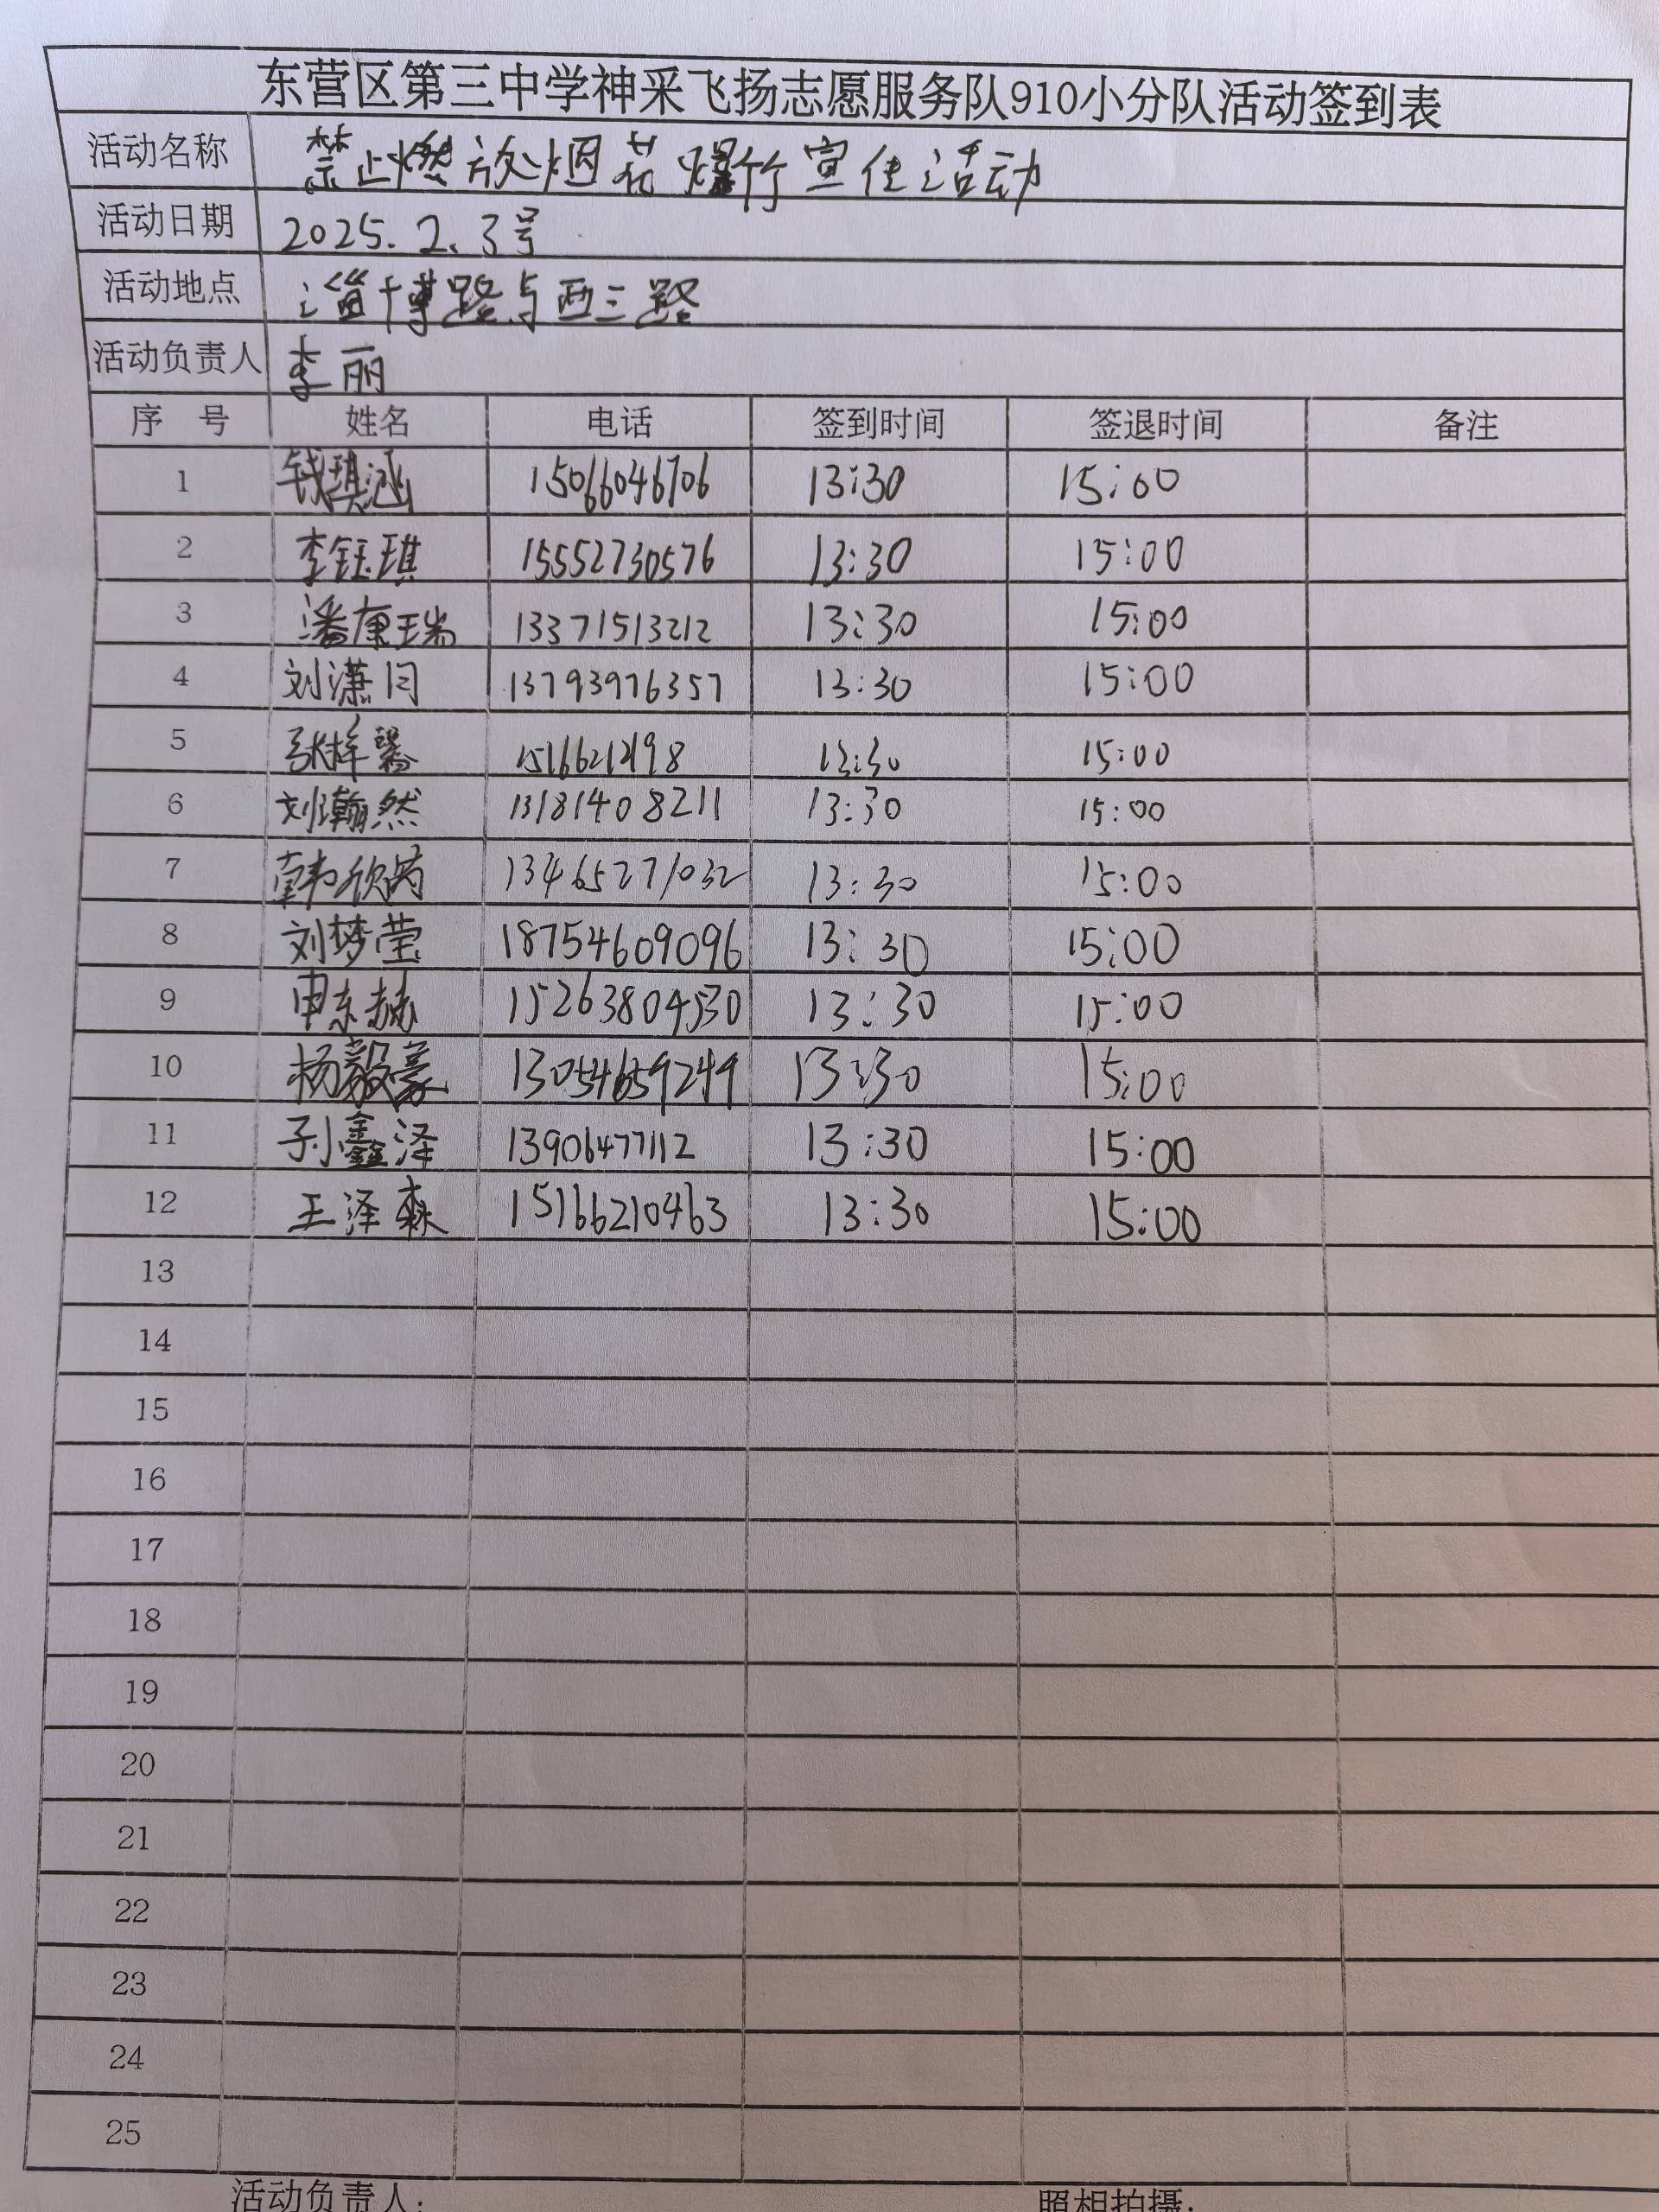 东营区第三中学神采飞扬志愿服务队910小分队活动签到表
活动名称 禁止燃放烟花爆竹宣传活动
活动日期 2025.2.3号
活动地点 淄博路与西三路
活动负责人 李丽
序 号 姓名 电话 签到时间 签退时间 备注
1 钱琪涵 15066046706 13:30 15:00
2 李钰琪 15552730576 13:30 15:00
3 潘康瑞 13371513212 13:30 15:00
4 刘潇闫 13793976357 13:30 15:00
5 张梓馨 13:30 15:00
6 刘瀚然 13181408211 13:30 15:00
7 韩欣芮 13465271032 13:30 15:00
8 刘梦莹 18754609096 13:30 15:00
9 申东赫 15263804530 13:30 15:00
10 杨毅豪 13054659249 13:30 15:00
11 孙鑫泽 13906477112 13:30 15:00
12 王泽森 15166210463 13:30 15:00
13
14
15
16
17
18
19
20
21
22
23
24
25
活动负责人: 照相拍摄: